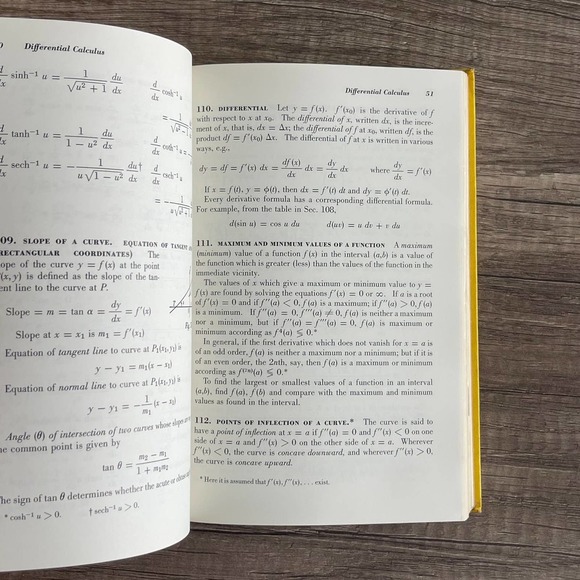 Differential Calculus
sinh⁻¹ u = 1/√(u² + 1) du/dx d/dx cosh⁻¹ u
= 1/
tanh⁻¹ u = 1/(1 − u²) du/dx d/dx coth⁻¹ u
=
sech⁻¹ u = −1/(u√(1 − u²)) du†/dx d/dx csch⁻¹
= −
09. SLOPE OF A CURVE. EQUATION OF TANGENT
RECTANGULAR COORDINATES) The
ope of the curve y = f(x) at the point
(x, y) is defined as the slope of the tan-
ent line to the curve at P.
Slope = m = tan α = dy/dx = f′(x)
Slope at x = x₁ is m₁ = f′(x₁)
Equation of tangent line to curve at P₁(x₁, y₁) is
y − y₁ = m₁(x − x₁)
Equation of normal line to curve at P₁(x₁, y₁) is
y − y₁ = −1/m₁ (x − x₁)
Angle (θ) of intersection of two curves whose slopes
he common point is given by
tan θ = (m₂ − m₁)/(1 + m₁m₂)
The sign of tan θ determines whether the acute or obtuse
* cosh⁻¹ u > 0. † sech⁻¹ u > 0.
Differential Calculus 51
110. DIFFERENTIAL Let y = f(x). f′(x₀) is the derivative of f
with respect to x at x₀. The differential of x, written dx, is the incre-
ment of x, that is, dx = Δx; the differential of f at x₀, written df, is the
product df = f′(x₀) Δx. The differential of f at x is written in various
ways, e.g.,
dy = df = f′(x) dx = df(x)/dx dx = dy/dx dx where dy/dx = f′(x)
If x = f(t), y = ϕ(t), then dx = f′(t) dt and dy = ϕ′(t) dt.
Every derivative formula has a corresponding differential formula.
For example, from the table in Sec. 108,
d(sin u) = cos u du d(uv) = u dv + v du
111. MAXIMUM AND MINIMUM VALUES OF A FUNCTION A maximum
(minimum) value of a function f(x) in the interval (a,b) is a value of
the function which is greater (less) than the values of the function in the
immediate vicinity.
The values of x which give a maximum or minimum value to y =
f(x) are found by solving the equations f′(x) = 0 or ∞. If a is a root
of f′(x) = 0 and if f″(a) < 0, f(a) is a maximum; if f″(a) > 0, f(a)
is a minimum. If f″(a) = 0, f‴(a) ≠ 0, f(a) is neither a maximum
nor a minimum, but if f″(a) = f‴(a) = 0, f(a) is maximum or
minimum according as f⁴(a) ≶ 0.*
In general, if the first derivative which does not vanish for x = a is
of an odd order, f(a) is neither a maximum nor a minimum; but if it is
of an even order, the 2nth, say, then f(a) is a maximum or minimum
according as f⁽²ⁿ⁾(a) ≶ 0.*
To find the largest or smallest values of a function in an interval
(a,b), find f(a), f(b) and compare with the maximum and minimum
values as found in the interval.
112. POINTS OF INFLECTION OF A CURVE.* The curve is said to
have a point of inflection at x = a if f″(a) = 0 and f″(x) < 0 on one
side of x = a and f″(x) > 0 on the other side of x = a. Wherever
f″(x) < 0, the curve is concave downward, and wherever f″(x) > 0,
the curve is concave upward.
* Here it is assumed that f′(x), f″(x), . . . exist.